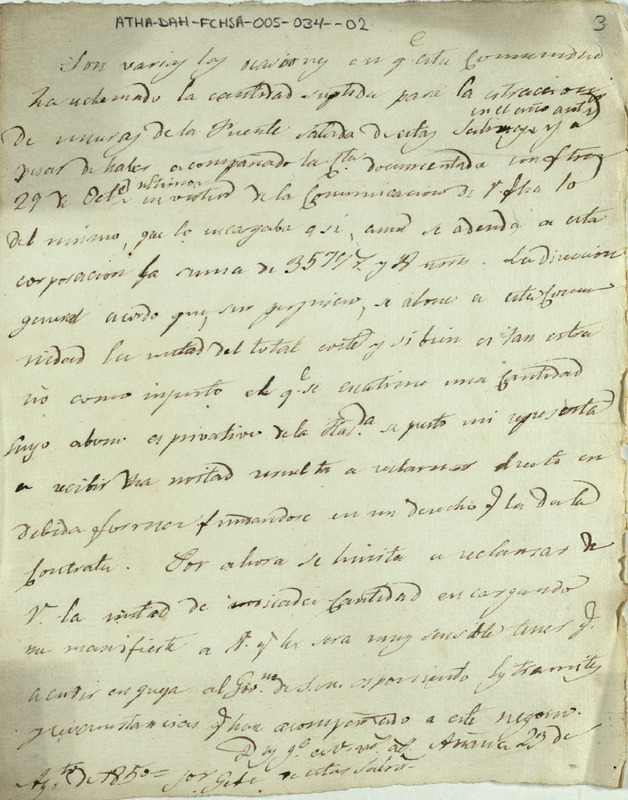 ATHA-DAH-FCHSA-005-034--02
3
Son varias las ocasiones en q.e esta Comunidad
ha reclamado la cantidad suplida para la
en el año
de muuras de la Fuente salada de estas Salinas y a
pesar de haber acompañado la documentada con fha
29 de Oct.e ultimo en virtud de la Comunicacion de V. fha 10
del mismo, que lo encargaba asi, aun se adeuda a esta
corporacion la suma de 3579 y rs. La direccion
general acordo que, sin perjuicio, se abone a esta Comu
nidad la mitad del total coste y si bien es tan estra
ño como injusto el q.e se escatime una Cantidad
cuyo abono es privativo de la Hac.da se presto mi representa
a recibir una mitad resuelta a reclamar el resto en
debida forma fundandose en un derecho q. la da la
Contrata. Por ahora se limita a reclamar de
V. la mitad de indicada Cantidad encargando
me manifieste a V. q. le sera muy sensible tener q.
acudir en queja al Gov.no de S.M. esponiendo los tramites
y circunstancias q. han acompañado a este negocio.
Dios g.e a V. m.s a.s Añana 23 de
Ag.to de 1850 = Sor. Gefe de estas Salin.s